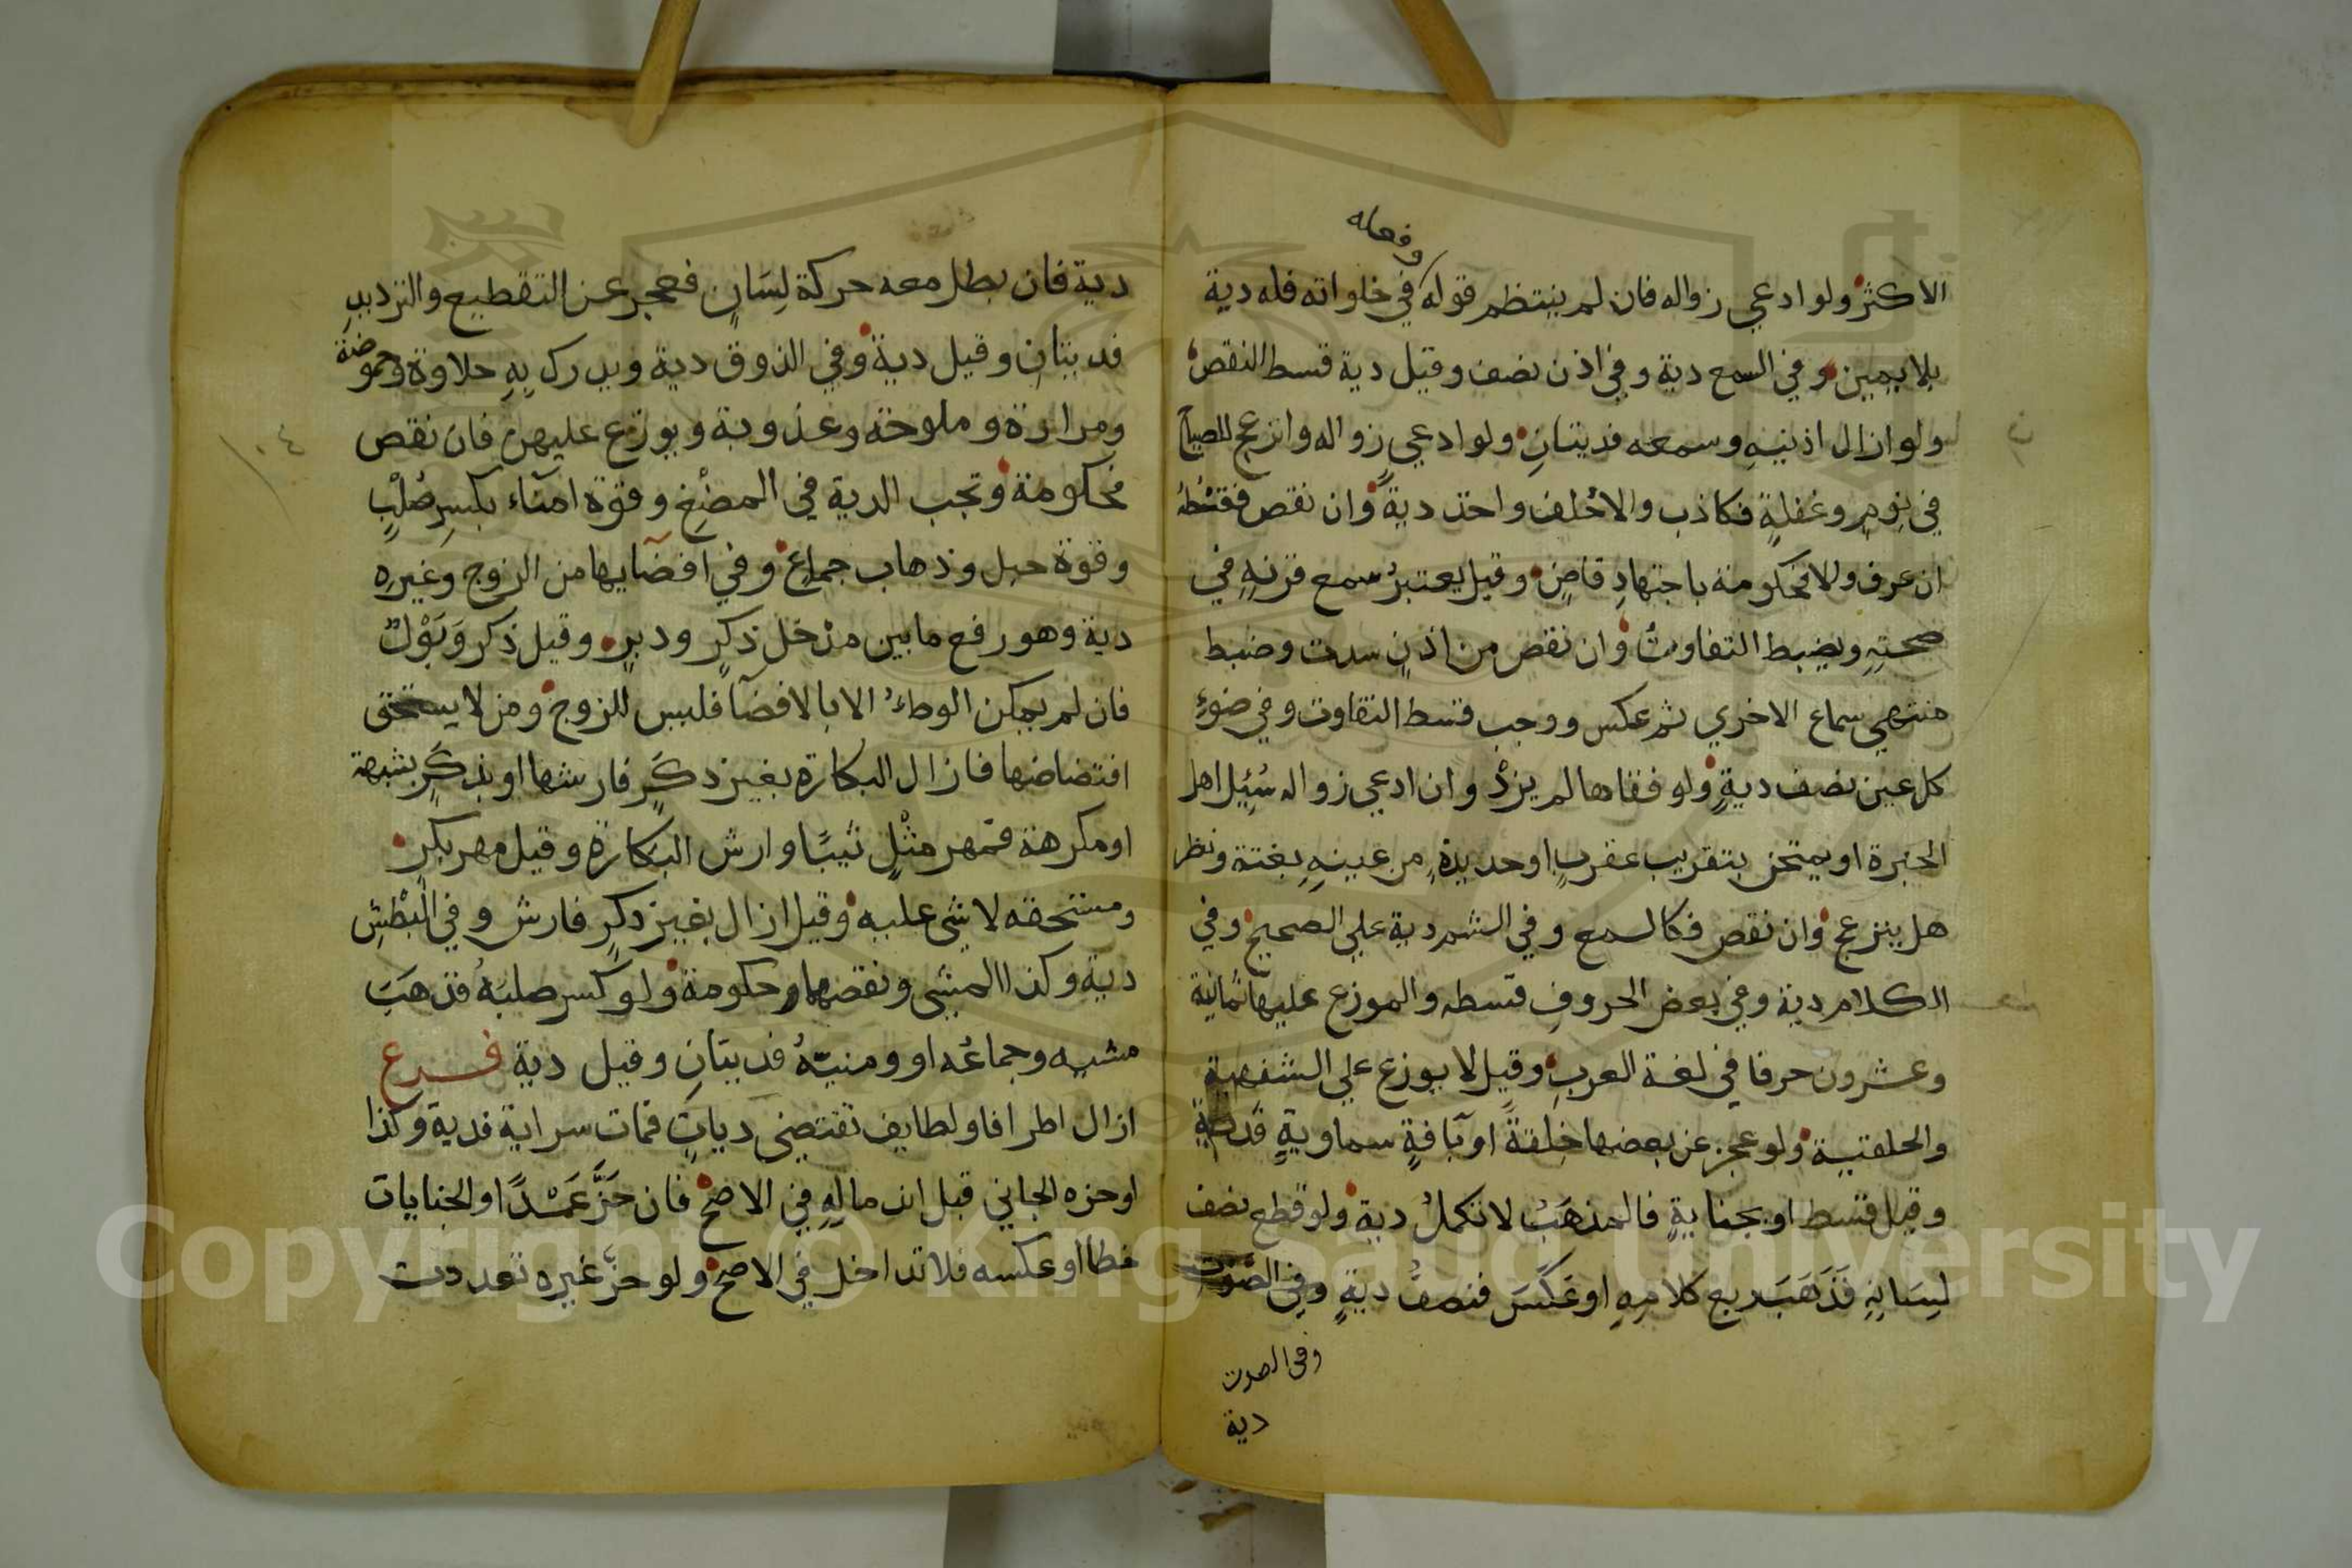 وفعله
الاكثر ولو ادعي زواله فان لم ينتظم قوله في خلواته فله دية
بلا يمين وفي السمع دية وفي اذن نصف وقيل دية قسط النقص
ولو ازال اذنيهِ وسمعه فديتانِ ولو ادعي زواله وانزعج للصياح
في نومٍ وغفلةٍ فكاذب والاحُلف واخذ ديةً وان نقص فقسْطُهُ
ان عرف والا فحكومة باجتهادِ قاضٍ وقيل يعتبرُ سمع قرنهِ في
صحتهِ ويضبط التفاوتُ وان نقص من اذنٍ سدت وضبط
منتهي سماع الاخري ثم عكس ووجب قسط التفاوت وفي ضوءِ
كل عين نصف ديةٍ ولو فقاها لم يزدْ وان ادعي زواله سُئِل اهل
الخبرة او يمتحن بتقريب عقربٍ او حديدةٍ من عينهِ بغتة ونظر
هل ينزعج وان نقص فكالسمع وفي الشم دية علي الصحيح وفي
الكلام دية وفي بعض الحروفِ قسطه والموزع عليها ثمانية
وعشرون حرفا في لغة العربِ وقيل لا يوزع علي الشفهية
والحلقية ولو عجز عن بعضها خلقةً او بآفةٍ سماويةٍ فدية
وقيل قسط او بجنايةٍ فالمذهَبُ لا تكملُ دية ولو قطع نصف
لِسَانِهِ فَذَهَبَ ربع كلامِهِ او عَكَسَ فنصفُ ديةٍ وفي الصَّوت
وفي الصوت
دية
دية فان بطل معه حركة لِسَانٍ فعجز عن التقطيع والترديدِ
فديتانِ وقيل دية وفي الذوق دية ويدرك بِهِ حلاوة وحموضة
ومرارة وملوحة وعذوبة ويوزع عليهن فان نقص
فحكومة وتجب الدية في المضْغِ وقوة امناء بكسرِ صُلْبٍ
وقوة حبل وذهاب جماعٍ وفي افضآيها من الزوج وغيرِه
دية وهو رفع ما بين مدْخل ذكرٍ ودبرٍ وقيل ذكر وَبَوْلٌ
فان لم يمكن الوطءُ الا بالافضآ فليس للزوج ومن لا يستحق
افتضاضها فازال البكارة بغير ذكَرٍ فارشها او بذكَرٍ بشبهة
او مكرهة فمهر مثْلٍ ثيبًا وارش البكارة وقيل مهر بكرٍ
ومستحقه لا شي عليه وقيل ازال بغير ذكرٍ فارش وفي البَطْشِ
دية وكذا المشي ونقصهما حكومة ولو كسر صلبهُ فذهَبَ
مشيه وجماعُه او ومنيّهُ فديتانِ وقيل دية فــرع
ازال اطرافا ولطايف تقتضي دياتٍ فمات سراية فدية وكذا
او حزه الجاني قبل اندمالِهِ في الاصح فان حَزَّ عَمْدًا والجنايات
خطا او عكسه فلا تداخل في الاصح ولو حزّ غيره تعددت
١٠٤
Copyright © King Saud University